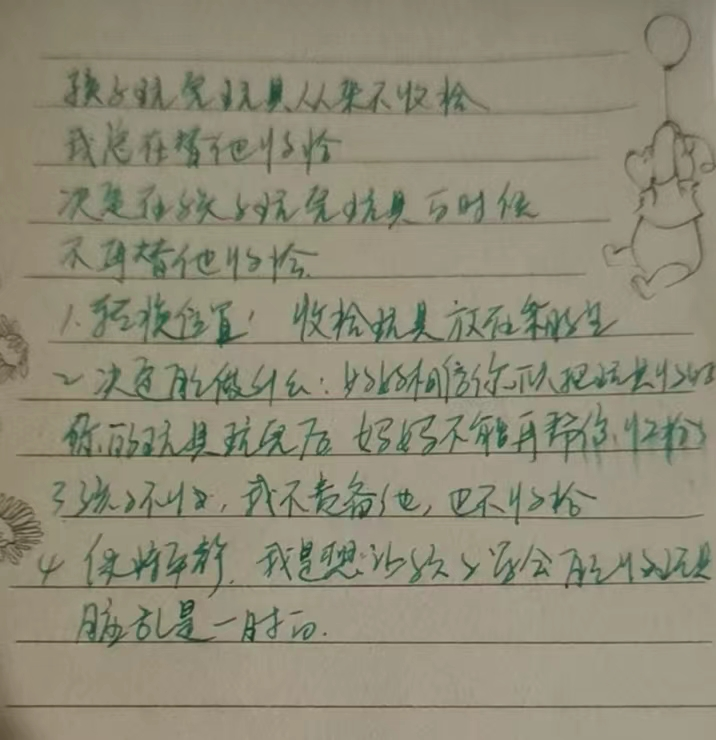 孩子玩完玩具从来不收拾
我总在替他收拾
决定在孩子玩完玩具的时候
不再替他收拾
1.轻换位置: 收拾玩具放在
2 决定自己做什么:妈妈相信你可以把玩具收好
你的玩具玩完后 妈妈不能再帮你收拾
3 孩子不收,我不责备他,也不收拾
4 保持平静,我是想让孩子学会自己收玩具
脏乱是一时的.